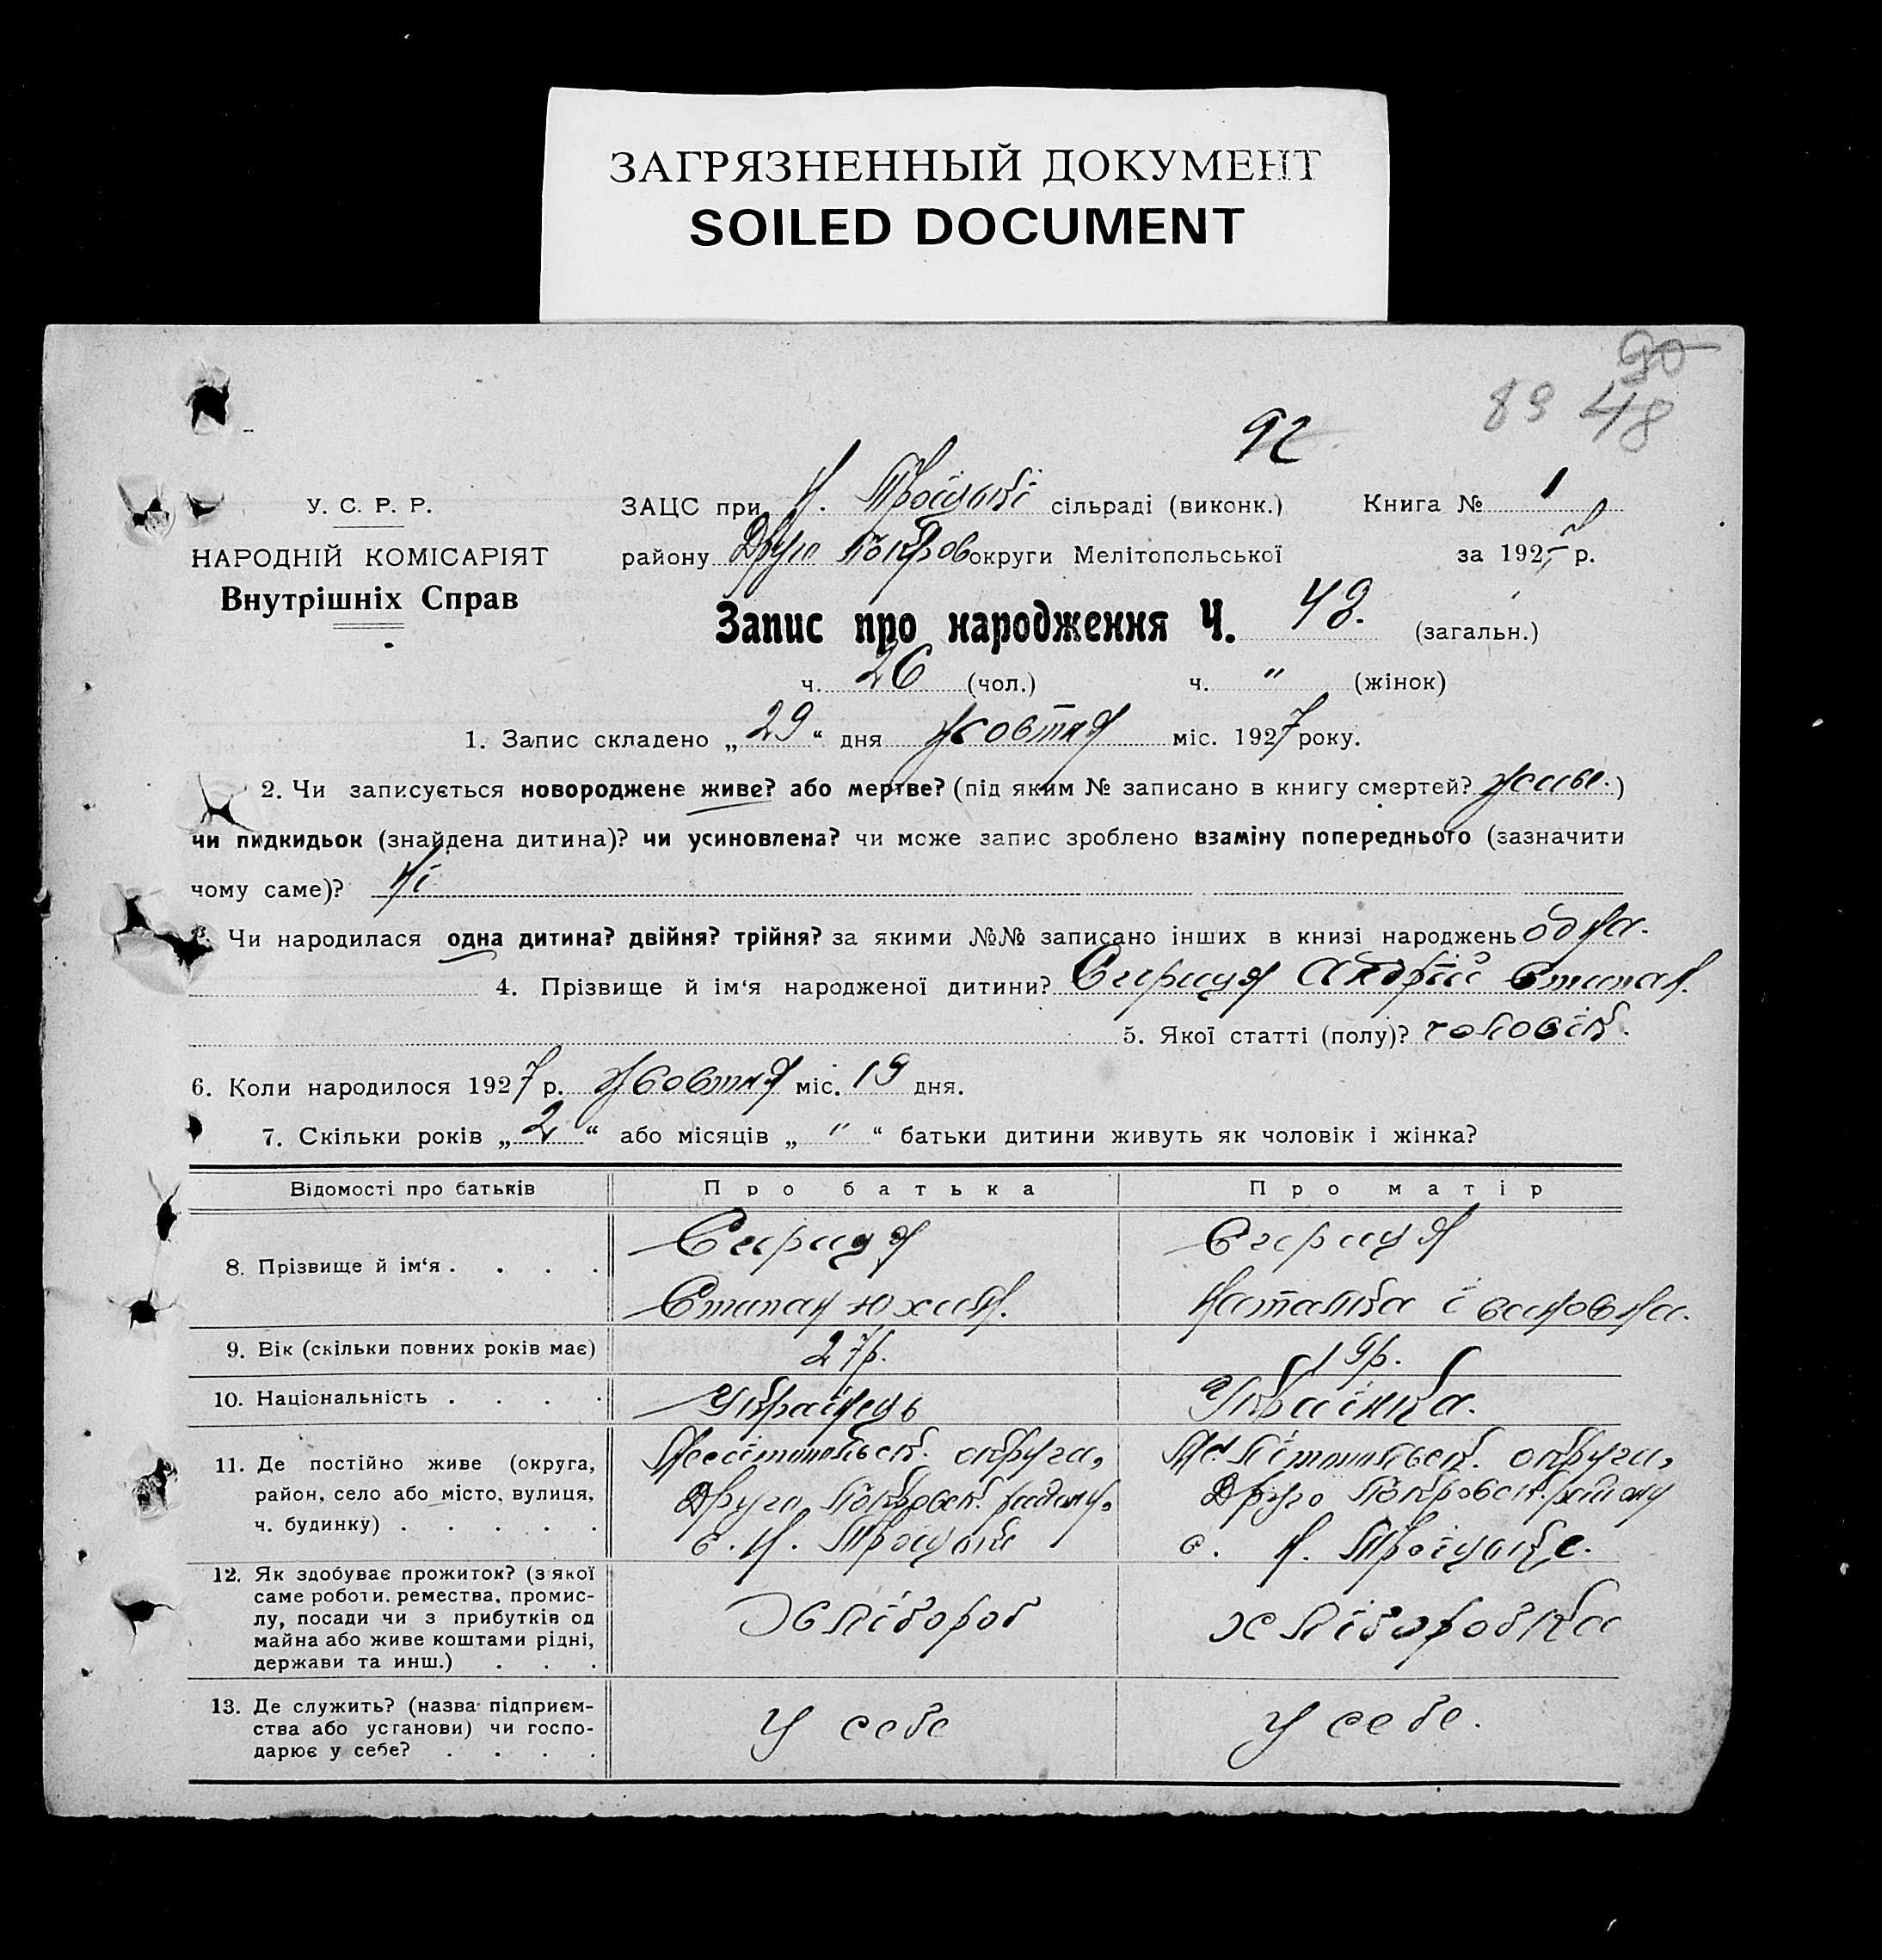 ЗАГРЯЗНЕННЫЙ ДОКУМЕНТ
SOILED DOCUMENT
90
89 48
92
У. С. Р. Р.
НАРОДНІЙ КОМІСАРІЯТ
Внутрішніх Справ
ЗАЦС при Н. Троіцькі сільраді (виконк.) Книга № 1
району Друго Покров округи Мелітопольської за 192 р.
Запис про народження Ч. 48. (загальн.)
ч. 26 (чол.) ч. " (жінок)
1. Запис складено „29“ дня жовтня міс. 1927 року.
2. Чи записується новороджене живе? або мертве? (під яким № записано в книгу смертей? живе.)
чи підкидьок (знайдена дитина)? чи усиновлена? чи може запис зроблено взаміну попереднього (зазначити
чому саме)? Ні
3. Чи народилася одна дитина? двійня? трійня? за якими №№ записано інших в книзі народжень одна.
4. Прізвище й ім‘я народженої дитини? Андрій Степан.
5. Якої статті (полу)? чоловік.
6. Коли народилося 1927 р. жовтня міс. 19 дня.
7. Скільки років „2“ або місяців „ " “ батьки дитини живуть як чоловік і жінка?
Відомості про батьків Про батька Про матір
8. Прізвище й ім‘я . . . .
Степан Юхим.
Наталка Івановна.
9. Вік (скільки повних років має) 27р. 19р.
10. Національність . . . . Українець Українка.
11. Де постійно живе (округа,
район, село або місто, вулиця,
ч. будинку) . . . . .
Мелітопольськ. округи,
Друго Покровськ. району.
с. Н. Троіцьке
Мелітопольськ. округи,
Друго Покровськ. району
с. Н. Троіцьке.
12. Як здобуває прожиток? (з якої
саме роботи, ремества, промис-
лу, посади чи з прибутків од
майна або живе коштами рідні,
держави та инш.) . . .
Хлібороб
хліборобка
13. Де служить? (назва підприєм-
ства або установи) чи госпо-
дарює у себе? . . . .
У себе
У себе.